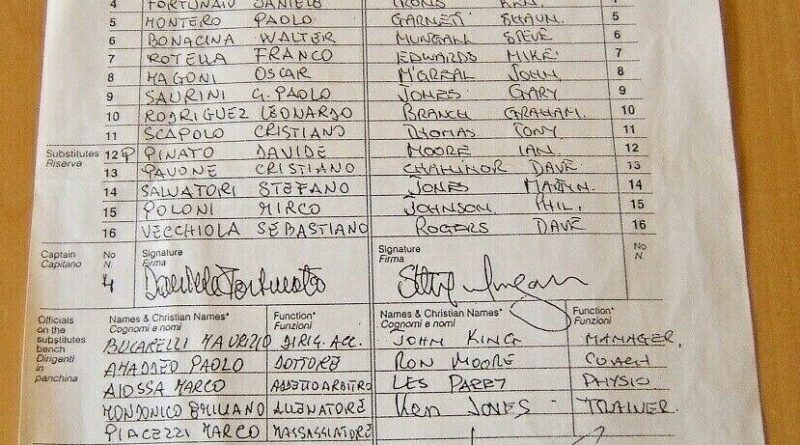 4 FORTUNATO DANIELE IRONS KEN. 4
5 MONTERO PAOLO GARNETT SHAUN. 5
6 BONACINA WALTER MUNGALL STEVE 6
7 ROTELLA FRANCO EDWARDS MIKE. 7
8 MAGONI OSCAR M'GREAL JOHN. 8
9 SAURINI G. PAOLO JONES GARY 9
10 RODRIGUEZ LEONARDO BRANCH GRAHAM. 10
11 SCAPOLO CRISTIANO THOMAS TONY 11
Substitutes 12 P PINATO DAVIDE MOORE IAN. 12
Riserva 13 PAVONE CRISTIANO CHALLINOR DAVE 13
14 SALVATORI STEFANO JONES MARTYN. 14
15 POLONI MIRCO JOHNSON PHIL. 15
16 VECCHIOLA SEBASTIANO ROGERS DAVE 16
Captain No Signature Signature No
Capitano N. Firma Firma N.
4 Daniele Fortunato
Officials Names & Christian Names* Function* Names & Christian Names* Function*
on the Cognomi e nomi Funzioni Cognomi e nomi Funzioni
substitutes BUCARELLI MAURIZIO DIRIG. ACC. JOHN KING MANAGER.
bench AMADEO PAOLO DOTTORE RON MOORE COACH
Dirigenti AIOSSA MARCO ADDETTO ARBITRO LES PARRY PHYSIO
in MONDONICO EMILIANO ALLENATORE KEN JONES TRAINER.
panchina PIACEZZI MARCO MASSAGGIATORE